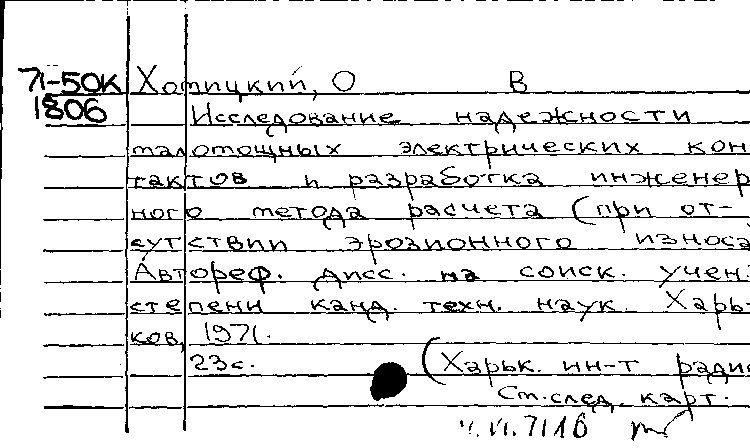 71-50К Хотицкий, О В
1806 Исследование надежности
маломощных электрических кон
тактов и разработка инженер
ного метода расчета (при от-
сутствии эрозионного износа
Автореф. дисс. на соиск. учен.
степени канд. техн. наук. Харь-
ков, 1971.
23с. (Харьк. ин-т радио
См.след. карт.